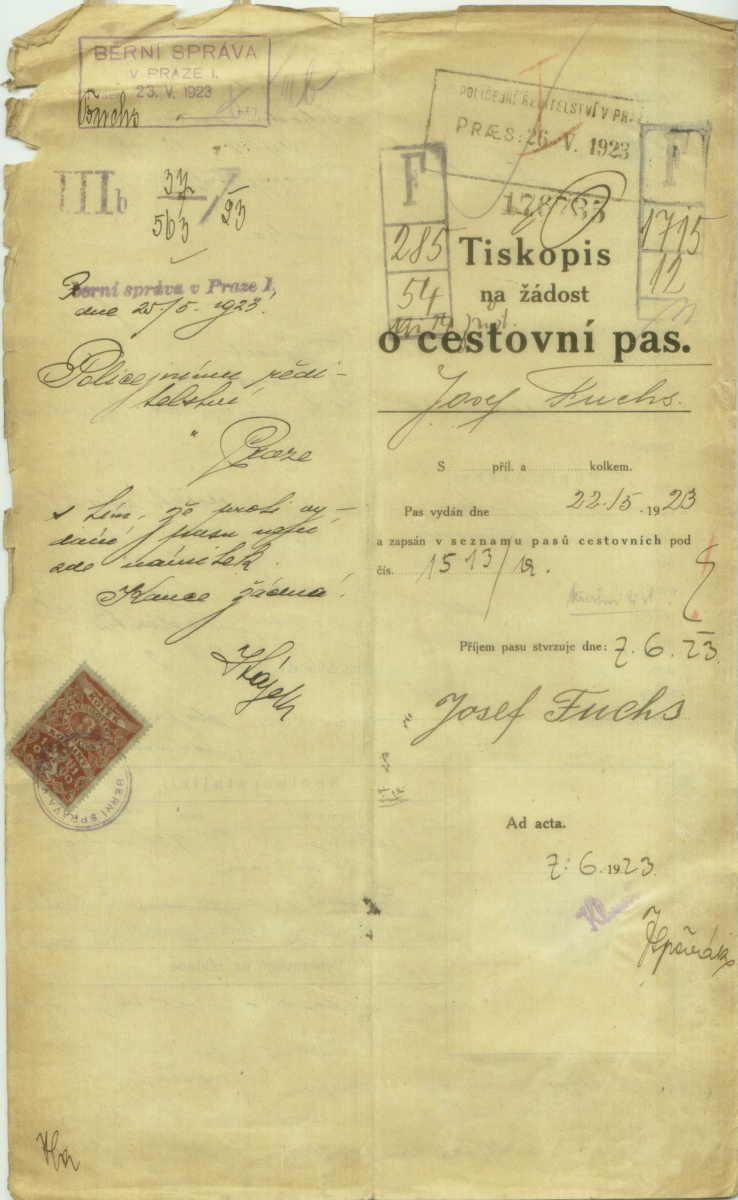 BERNÍ SPRÁVA
V PRAZE I.
23. V. 1923
Fuchs
IIIb
563 / 23
Berní správa v Praze I,
dne 25/5. 1923.
Policejnímu ředi-
telství
"
Praze
s tím, že proti vy-
dání pasu není
zde námitek.
Kauce žádná.
Hájek
KOLEK
BERNÍ SPRÁVA
POLICEJNÍ ŘEDITELSTVÍ V PRAZE
PRÆS: 26. V. 1923
F
285
54
F
1715
12
Tiskopis
na žádost
o cestovní pas.
Josef Fuchs.
S příl. a kolkem.
Pas vydán dne 22./5. 1923
a zapsán v seznamu pasů cestovních pod
čís. 1513/
Příjem pasu stvrzuje dne: 7. 6. 23.
Josef Fuchs
Ad acta.
7. 6. 1923.